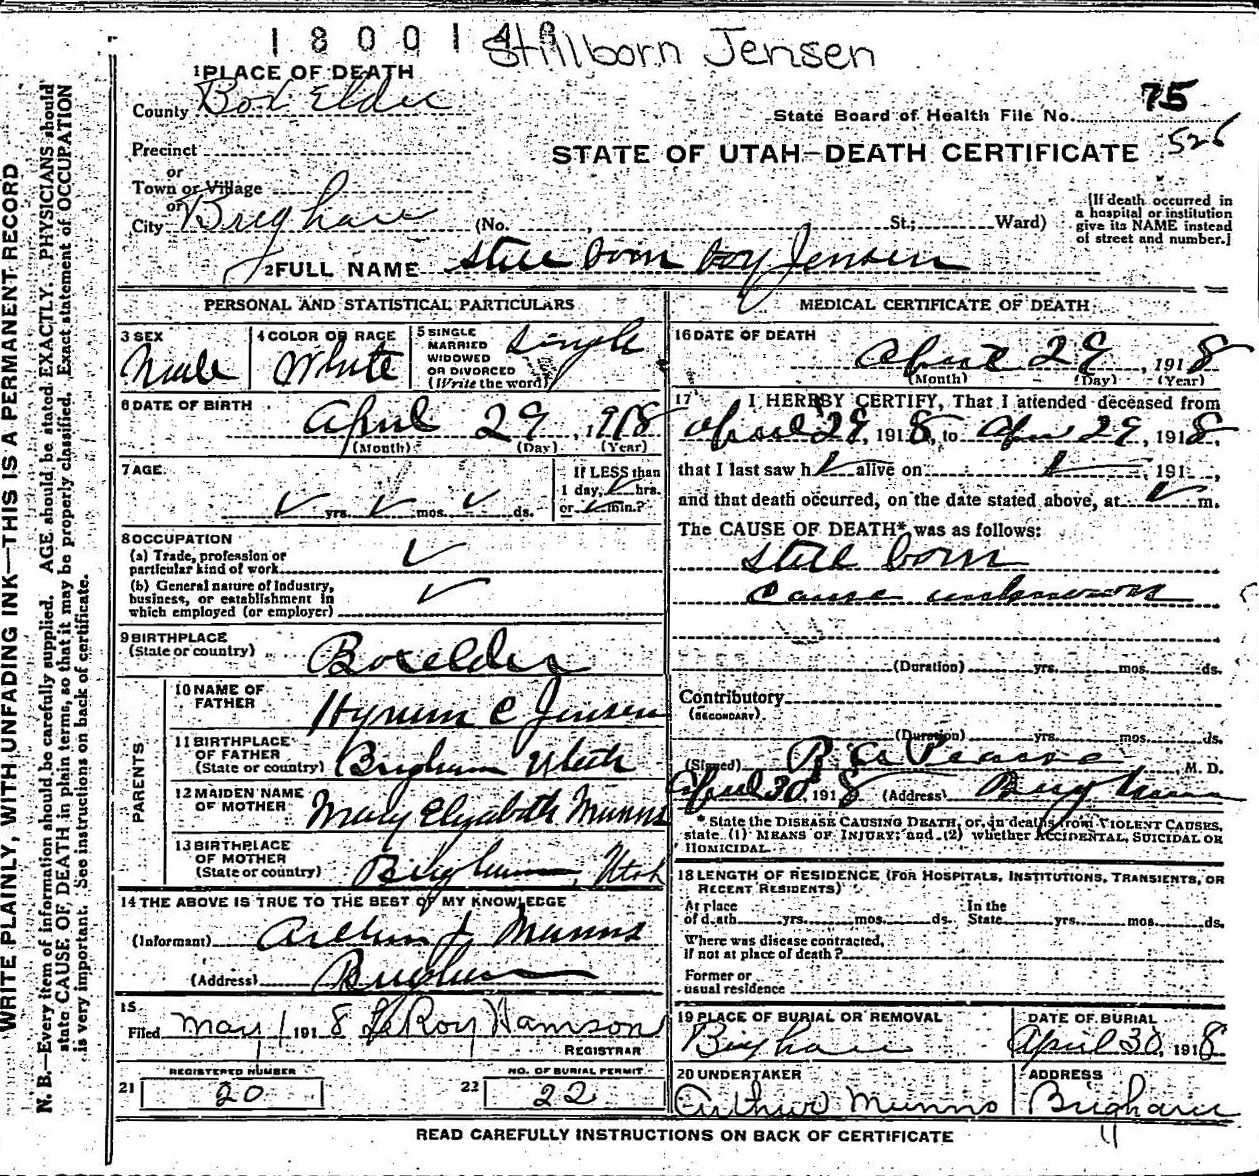 1800148 Stillborn Jensen
1 PLACE OF DEATH
County Box Elder
State Board of Health File No. 75
526
Precinct
STATE OF UTAH—DEATH CERTIFICATE
or
Town or Village
or
City Brigham (No. St.; Ward)
[If death occurred in
a hospital or institution
give its NAME instead
of street and number.]
2 FULL NAME still born boy Jensen
PERSONAL AND STATISTICAL PARTICULARS
3 SEX
Male
4 COLOR OR RACE
White
5 SINGLE
MARRIED
WIDOWED
OR DIVORCED
(Write the word)
Single
6 DATE OF BIRTH
April 29, 1918
(Month) (Day) (Year)
7 AGE
yrs. mos. ds.
If LESS than
1 day, hrs.
or min.?
8 OCCUPATION
(a) Trade, profession or
particular kind of work
(b) General nature of Industry,
business, or establishment in
which employed (or employer)
9 BIRTHPLACE
(State or country)
Boxelder
PARENTS
10 NAME OF
FATHER
Hyrum C Jensen
11 BIRTHPLACE
OF FATHER
(State or country)
Brigham Utah
12 MAIDEN NAME
OF MOTHER
Mary Elizabeth Munns
13 BIRTHPLACE
OF MOTHER
(State or country)
Brigham, Utah
14 THE ABOVE IS TRUE TO THE BEST OF MY KNOWLEDGE
(Informant) Munns
(Address) Brigham
15
Filed May 1 1918 LeRoy
REGISTRAR
21
REGISTERED NUMBER
20
22
NO. OF BURIAL PERMIT
22
MEDICAL CERTIFICATE OF DEATH
16 DATE OF DEATH
April 29, 1918
(Month) (Day) (Year)
17 I HEREBY CERTIFY, That I attended deceased from
April 29, 1918, to Apr 29, 1918,
that I last saw h alive on 191 ,
and that death occurred, on the date stated above, at m.
The CAUSE OF DEATH* was as follows:
still born
cause unknown
(Duration) yrs. mos. ds.
Contributory
(SECONDARY)
(Duration) yrs. mos. ds.
(Signed) Pearse, M. D.
April 30, 1918 (Address) Brigham
* State the DISEASE CAUSING DEATH, or, in deaths from VIOLENT CAUSES,
state (1) MEANS OF INJURY; and (2) whether ACCIDENTAL, SUICIDAL OR
HOMICIDAL.
18 LENGTH OF RESIDENCE (FOR HOSPITALS, INSTITUTIONS, TRANSIENTS, OR
RECENT RESIDENTS)
At place
of death yrs. mos. ds.
In the
State yrs. mos. ds.
Where was disease contracted,
If not at place of death?
Former or
usual residence
19 PLACE OF BURIAL OR REMOVAL
Brigham
DATE OF BURIAL
April 30, 1918
20 UNDERTAKER
Arthur Munns
ADDRESS
Brigham
READ CAREFULLY INSTRUCTIONS ON BACK OF CERTIFICATE
WRITE PLAINLY, WITH UNFADING INK—THIS IS A PERMANENT RECORD
N. B.—Every item of information should be carefully supplied. AGE should be stated EXACTLY. PHYSICIANS should
state CAUSE OF DEATH in plain terms, so that it may be properly classified. Exact statement of OCCUPATION
is very important. See instructions on back of certificate.